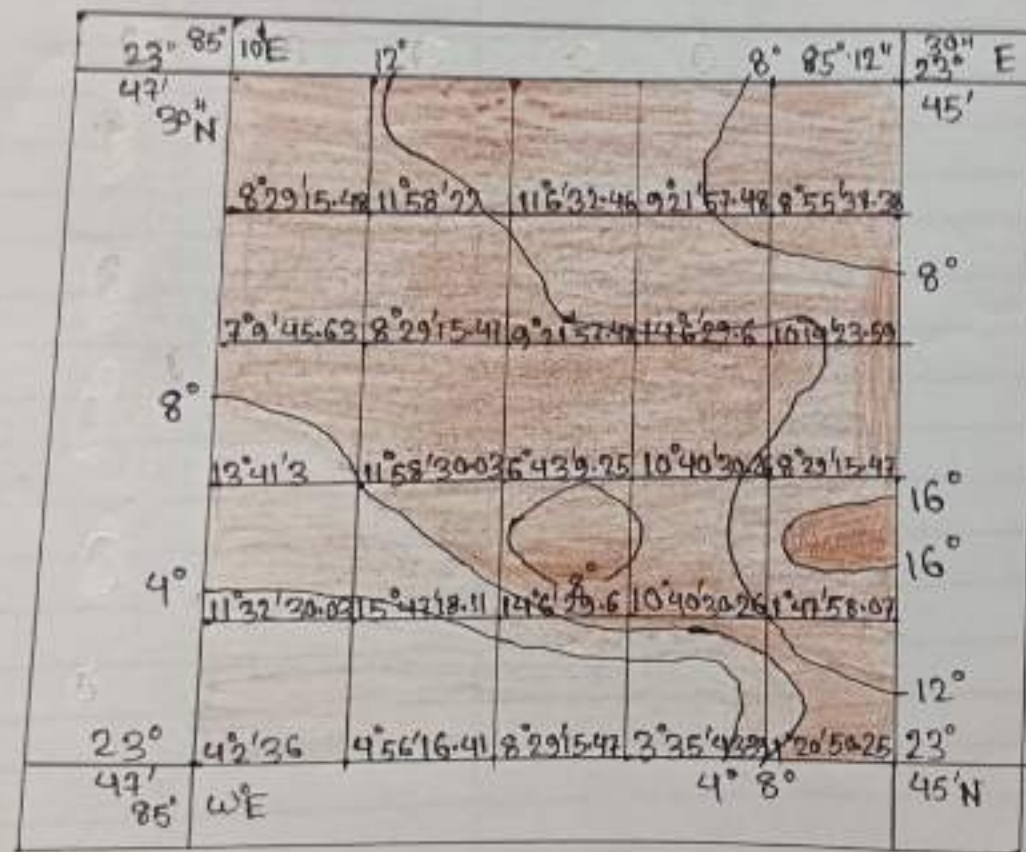 23° 85° 10'E 12° 8° 85°.12" 30" 23° E
47' 45'
30"N
8°29'15.48 11°58'22 11°6'32.46 9°21'57.48 8°55'38.38
8°
7°9'45.63 8°29'15.47 9°21'57.48 14°6'29.6 10°14'23.59
8°
13°41'3 11°58'30.03 6°43'9.25 10°40'30.26 8°29'15.47
16°
16°
4° 8°
11°32'30.03 15°42'18.11 14°6'29.6 10°40'30.26 1°47'58.07
12°
23° 4°2'36 4°56'16.41 8°29'15.47 3°35'43 1°20'50.25 23°
47' 4° 8° 45'N
85°